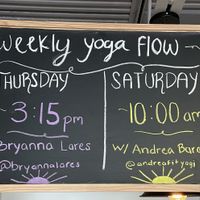 weekly yoga flow
THURSDAY
3:15 pm
Bryanna Lares
@bryannalares
SATURDAY
10:00 am
w/ Andrea
@andreafityogi